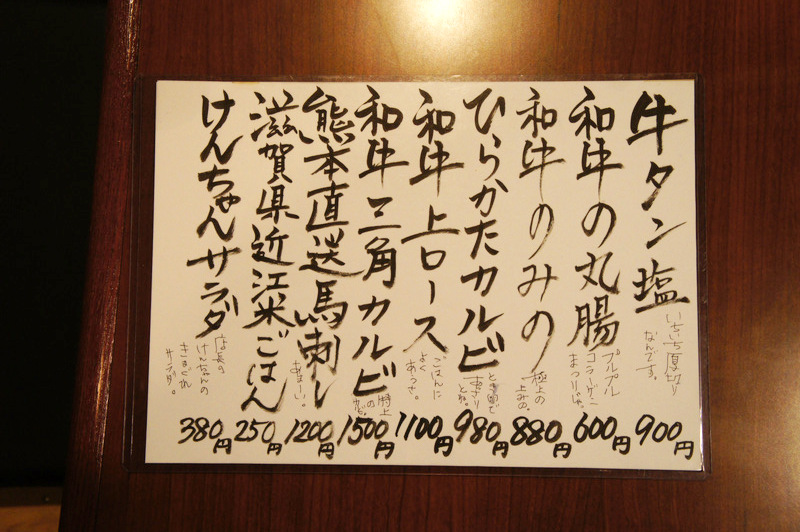 牛タン塩
いちいち厚切り
なんです。
900円
和牛の丸腸
プルプル
コラーゲン
まつりじゃ。
600円
和牛のみの
極上の
上みの。
880円
ひらかたカルビ
980円
和牛上ロース
ごはんに
よく
あうさ。
1100円
和牛三角カルビ
特上
の
1500円
熊本直送馬刺し
あまーい。
1200円
滋賀県近江米ごはん
250円
けんちゃんサラダ
店長の
けんちゃんの
きまぐれ
サラダ。
380円